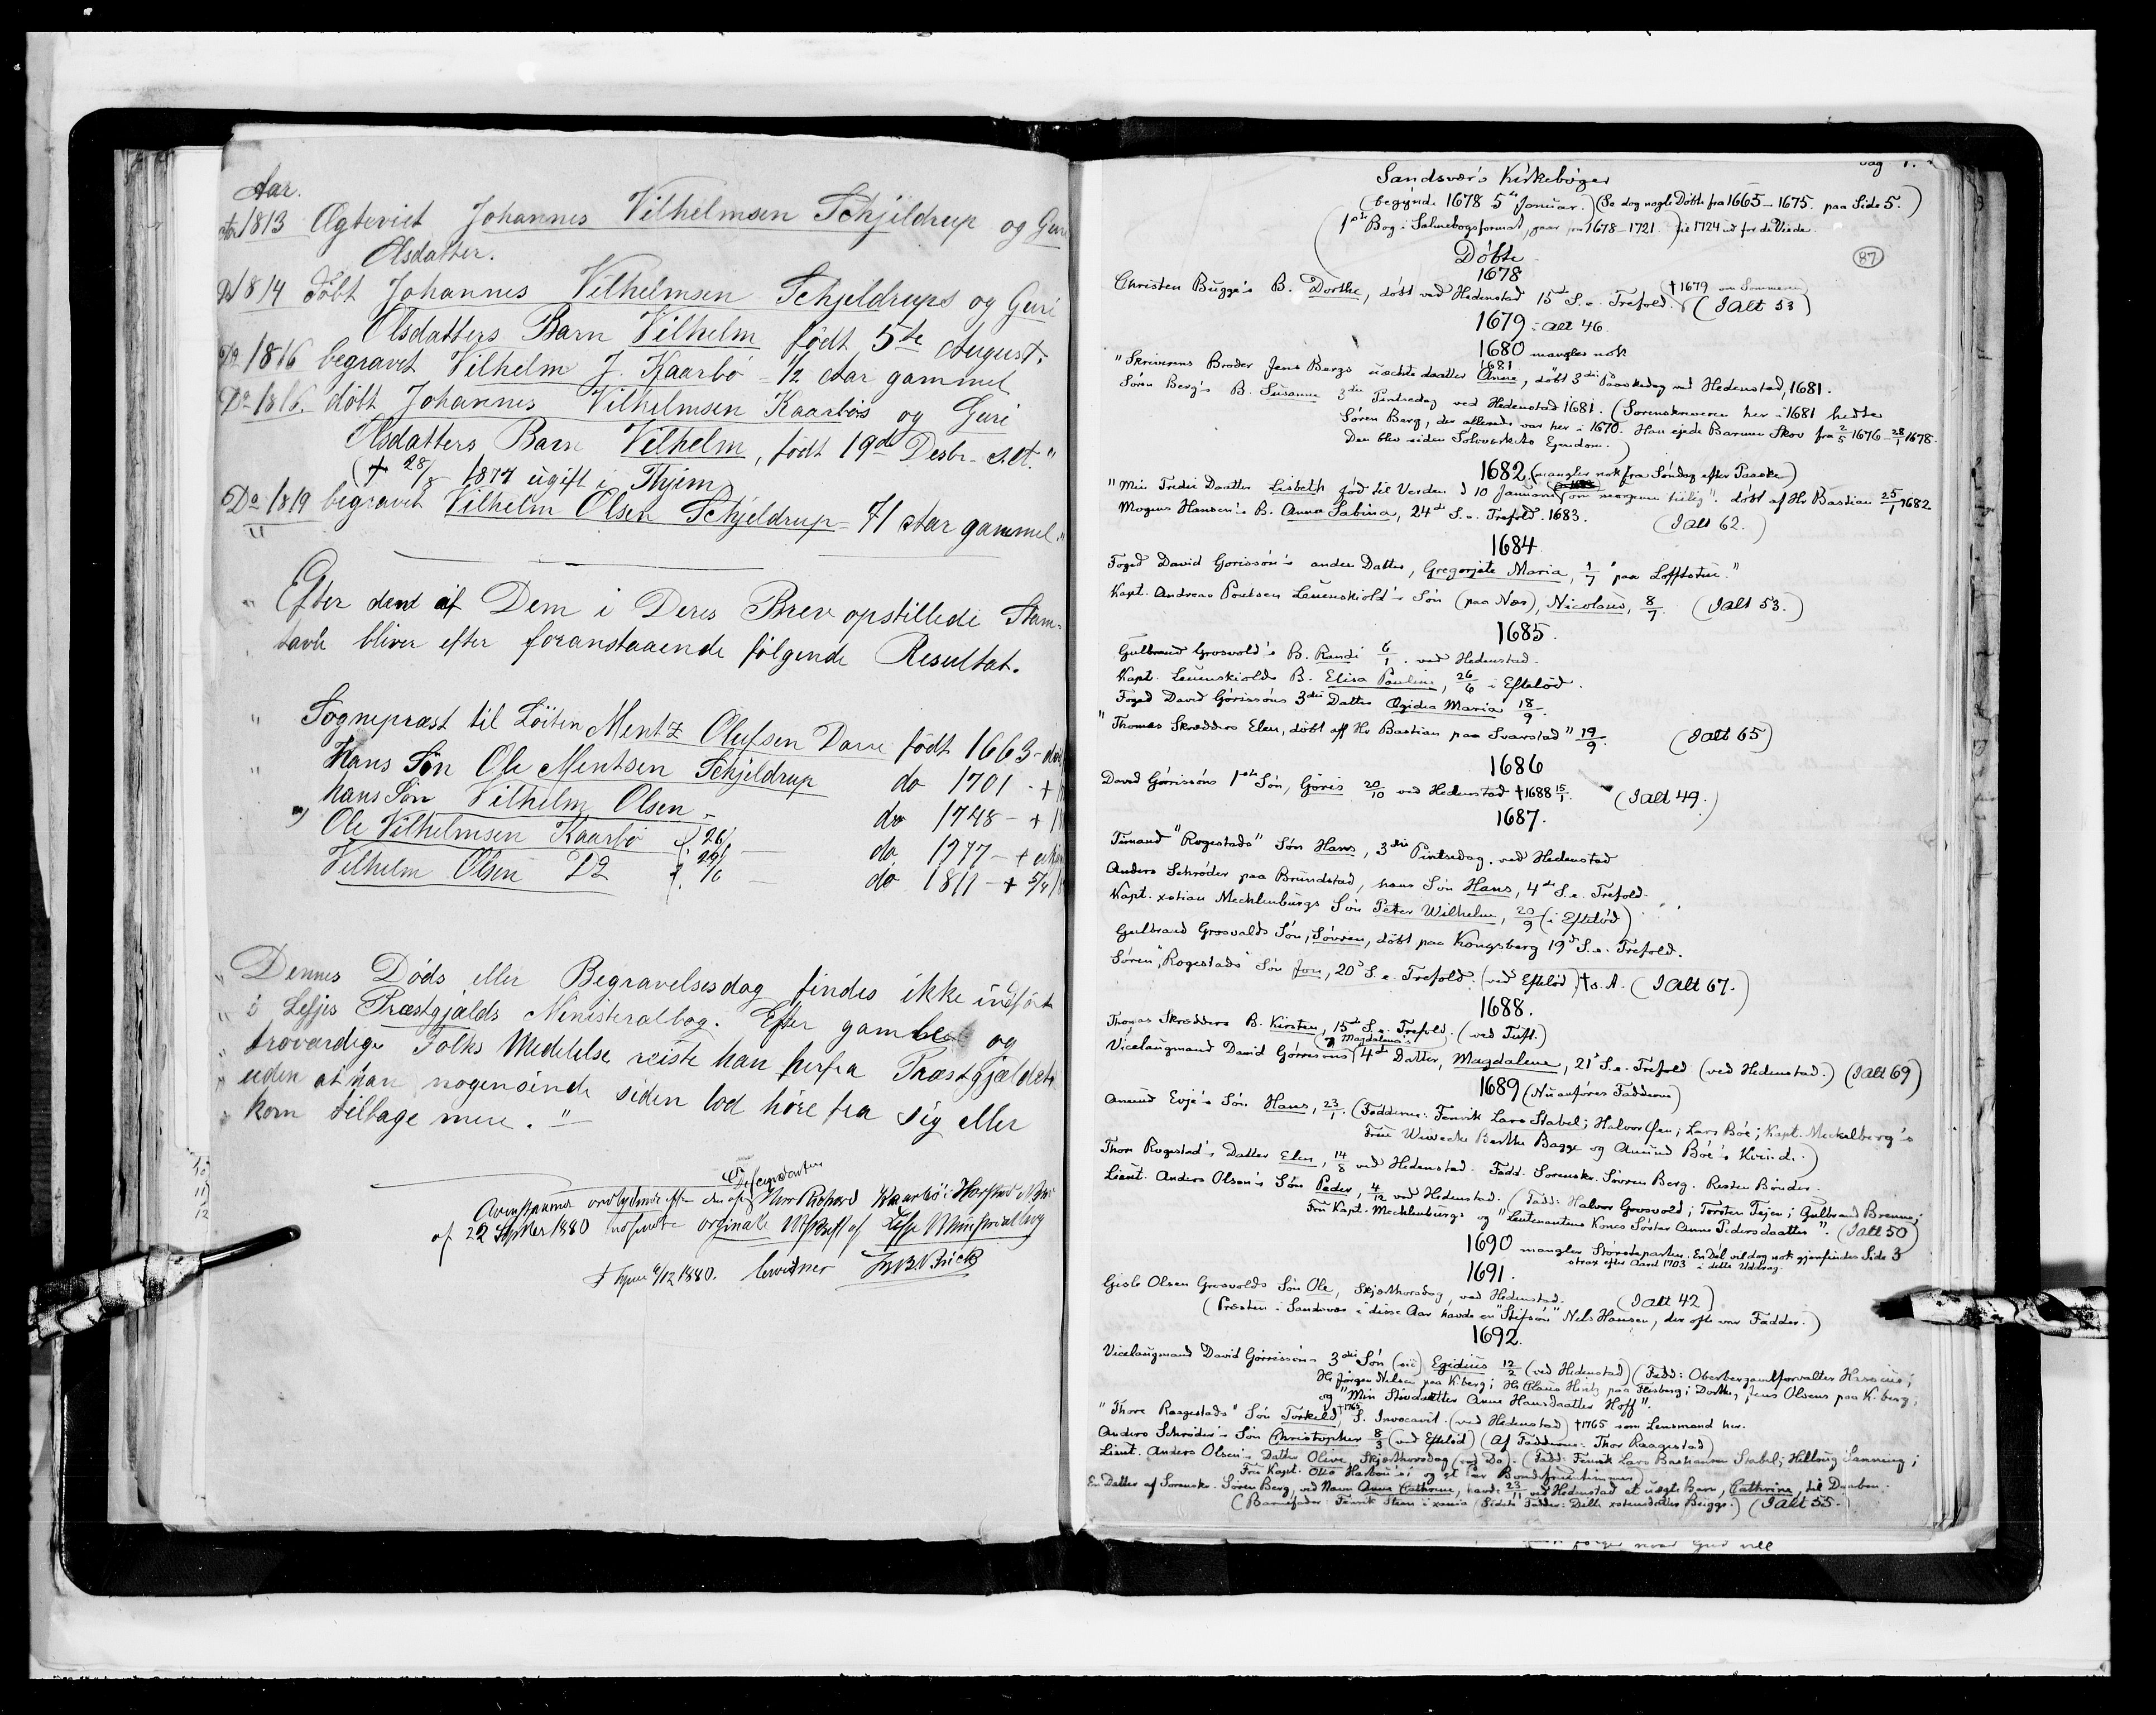 Aar.
1813 Ægteviet Johannes Vilhelmsen Schjeldrup og Guri
Olsdatter.
Do 1814 döbt Johannes Vilhelmsen Schjeldrups og Guri
Olsdatters Barn Vilhelm födt 5te August.
Do 1816 begravet Vilhelm J. Kaarbö - 1/2 Aar gammel
Do 1816. döbt Johannes Vilhelmsen Kaarbös og Guri
Olsdatters Barn Vilhelm, födt 19de Desbr. s.A."
(+ 28/8 1877 ugift i Thjem)
Do 1819 begravet Vilhelm Olsen Schjeldrup - 71 Aar gammel."
" Efter den af Dem i Deres Brev opstillede Stam-
" tavle bliver efter foranstaaende fölgende Resultat.
" Sognepræst til Löiten Mentz Olufsen Darre födt 1663 -
" Hans Sön Ole Mentsen Schjeldrup do 1701 - +
hans Sön Vilhelm Olsen - do 1748 - +
") Ole Vilhelmsen Kaarbö 26/ - do 1777 - +
Vilhelm Olsen Do 29/6 - do 1811 - + 5/4
" Dennes Döds eller Begravelsesdag findes ikke indfört
" i Lesjes Præstgjælds Ministeralbog. Efter gamle og
" troværdige Folks Meddelelse reiste han herfra Præstgjældet
" uden at han nogensinde siden lod höre fra sig eller
" kom tilbage mere. "
Descendenten
af 22 Septber 1880 orginale af Lesje Ministerialbog
6/12 1880. bevidner
Sandsvær's Kirkebøger
(begynde 1678 5te Januar.) (Se dog nogle Døbte fra 1665-1675. paa Side 5.)
(1ste Bog i Salmebogsformat, gaar fra 1678-1721.) til 1724 ud for de Viede.
Døbte
87
1678
Christen Bugge's B. Dorthe, döbt ved Hedenstad 15de S. e. Trefold. († 1679 om Sommeren) (I Alt 53)
1679 i alt 46.
1680 mangler nok
1681
"Skriverens Broder Jens Bergs uächte daatter Anne, döbt 3die Paaskedag ved Hedenstad, 1681.
Søren Berg's B. Susanne 3die Pintsedag ved Hedenstad 1681. (Sorenskriveren her i 1681 hedte
Søren Berg, der allerede var her i 1670. Han ejede Barmen Skov fra 2/5 1676 - 28/1 1678.
Den blev siden Sölvverkets Egendom.)
1682. (mangler nok fra Søndag efter Paaske)
"Min Tredie Daatter Lisbeth fød til Verden d 10 Januarii om morgenen tiilig". döbt af Hr Bastian 25/1 1682
Mogens Hansen's B. Anna Sabina, 24de S. e. Trefold. 1683. (I alt 62.)
1684
Foged David Gørissøn's anden Datter, Gregorjete Maria, 1/7 "paa Lofftstue."
Kapt. Andreas Poulsen Leuenskiold's Søn (paa Næs), Nicolaus, 8/7. (I alt 53.)
1685.
Gulbrand Grosvold's B. Randi 6/1. ved Hedenstad.
Kapt. Leuenskiolds B. Elisa Pauline, 26/6 i Efteløt.
Foged David Gørissøns 3die Datter Ægidia Maria 18/9.
"Thomas Skredders Elen, döbt aff Hr Bastian paa Svarstad" 19/9. (I alt 65)
1686
David Gørrissøns 1ste Søn, Gøris 20/10 ved Hedenstad † 1688 15/1. (I alt 49.)
1687.
Timand "Rogestads" Søn Hans, 3die Pintsedag. ved Hedenstad
Anders Schrøder paa Brundstad, hans Søn Hans, 4de S. e. Trefold.
Kapt. xstian Mechlenburgs Søn Peter Wilhelm, 20/9 (i Efteløt)
Gulbrand Grosvolds Søn, Søvren, döbt paa Kongsberg 19de S. e. Trefold.
Søren "Rogestads" Søn Jon, 20de S. e. Trefold. (ved Efteløt) † s. A. (I alt 67.)
1688.
Thomas Skredders B. Kirsten, 15de S. e. Trefold. (ved Tuft.)
Vicelaugmand David Gørrissøns 4de Datter, Magdalene, 21de S. e. Trefold (ved Hedenstad.) (I alt 69)
1689 (Nu anføres Fadderne)
Amund Evje's Søn Hans, 23/1. (Fadderne: Fenrik Lars Stabel; Halvor Øen; Lars Bøe; Kapt. Meckelberg's
Frue Wiwecke Barthe Bagge og Amund Bøe's Kvinde.)
Thore Rogestad's Datter Elen, 14/8 ved Hedenstad. Fadd. Sorenskr. Søvren Berg. Resten Bønder.
Lieut. Anders Olsen's Søn Peder, 4/12 ved Hedenstad. (Fadd: Halvor Grosvold; Torsten Tejen; Gulbrand Brenne;
Fru Kapt. Mechlenburgs og "Leutenantens Kones Søster Anne Pedersdaatter". (I alt 50)
1690 mangler Størsteparten. En Del vil dog nok gjenfindes Side 3
strax efter Aaret 1703 i dette Uddrag.
1691.
Gisle Olsen Grosvolds Søn Ole, Skjærthorsdag, ved Hedenstad. (I alt 42)
(Præsten i Sandsvær i disse Aar havde en "Stifsøn" Nels Hansen, der ofte var Fadder.)
1692.
Vicelaugmand David Gørrissøn's 3die Søn (sic) Egidius 12/2 (ved Hedenstad) (Fadd: Oberbergamtforvalter
Hr Jørgen Nelsen paa K.berg; Hr Claus Hintz paa Flesberg; Dorthe, Jens Olsens paa K.berg;
og "Min Stivdaatter Anne Hansdaatter Hoff".
"Thore Raagestads" Søn Torkeld, S. Invocavit. (ved Hedenstad) † 1765 som Lensmand her.
Anders Schrøder's Søn Christopher 8/3 (ved Efteløt) (Af Fadderne: Thor Raagestad)
Lieut. Anders Olsen's Datter Olive Skjærthorsdag (ved Do). (Fadd: Fenrik Lars Bastiansen Stabel; Hellving Sanning;
Fru Kapt. Otto Harboe's; og et Par Bondefruentimmer)
En Datter af Sorenskr. Søren Berg, ved Navn Anne Cathrine, havde 23/11 ved Hedenstad et uægte Barn, Cathrine, til Daaben.
(Barnefader: Fenrik Steen i xania (Sidste Fadder: Delle xstensdatter Bugge.) (I Alt 55.)